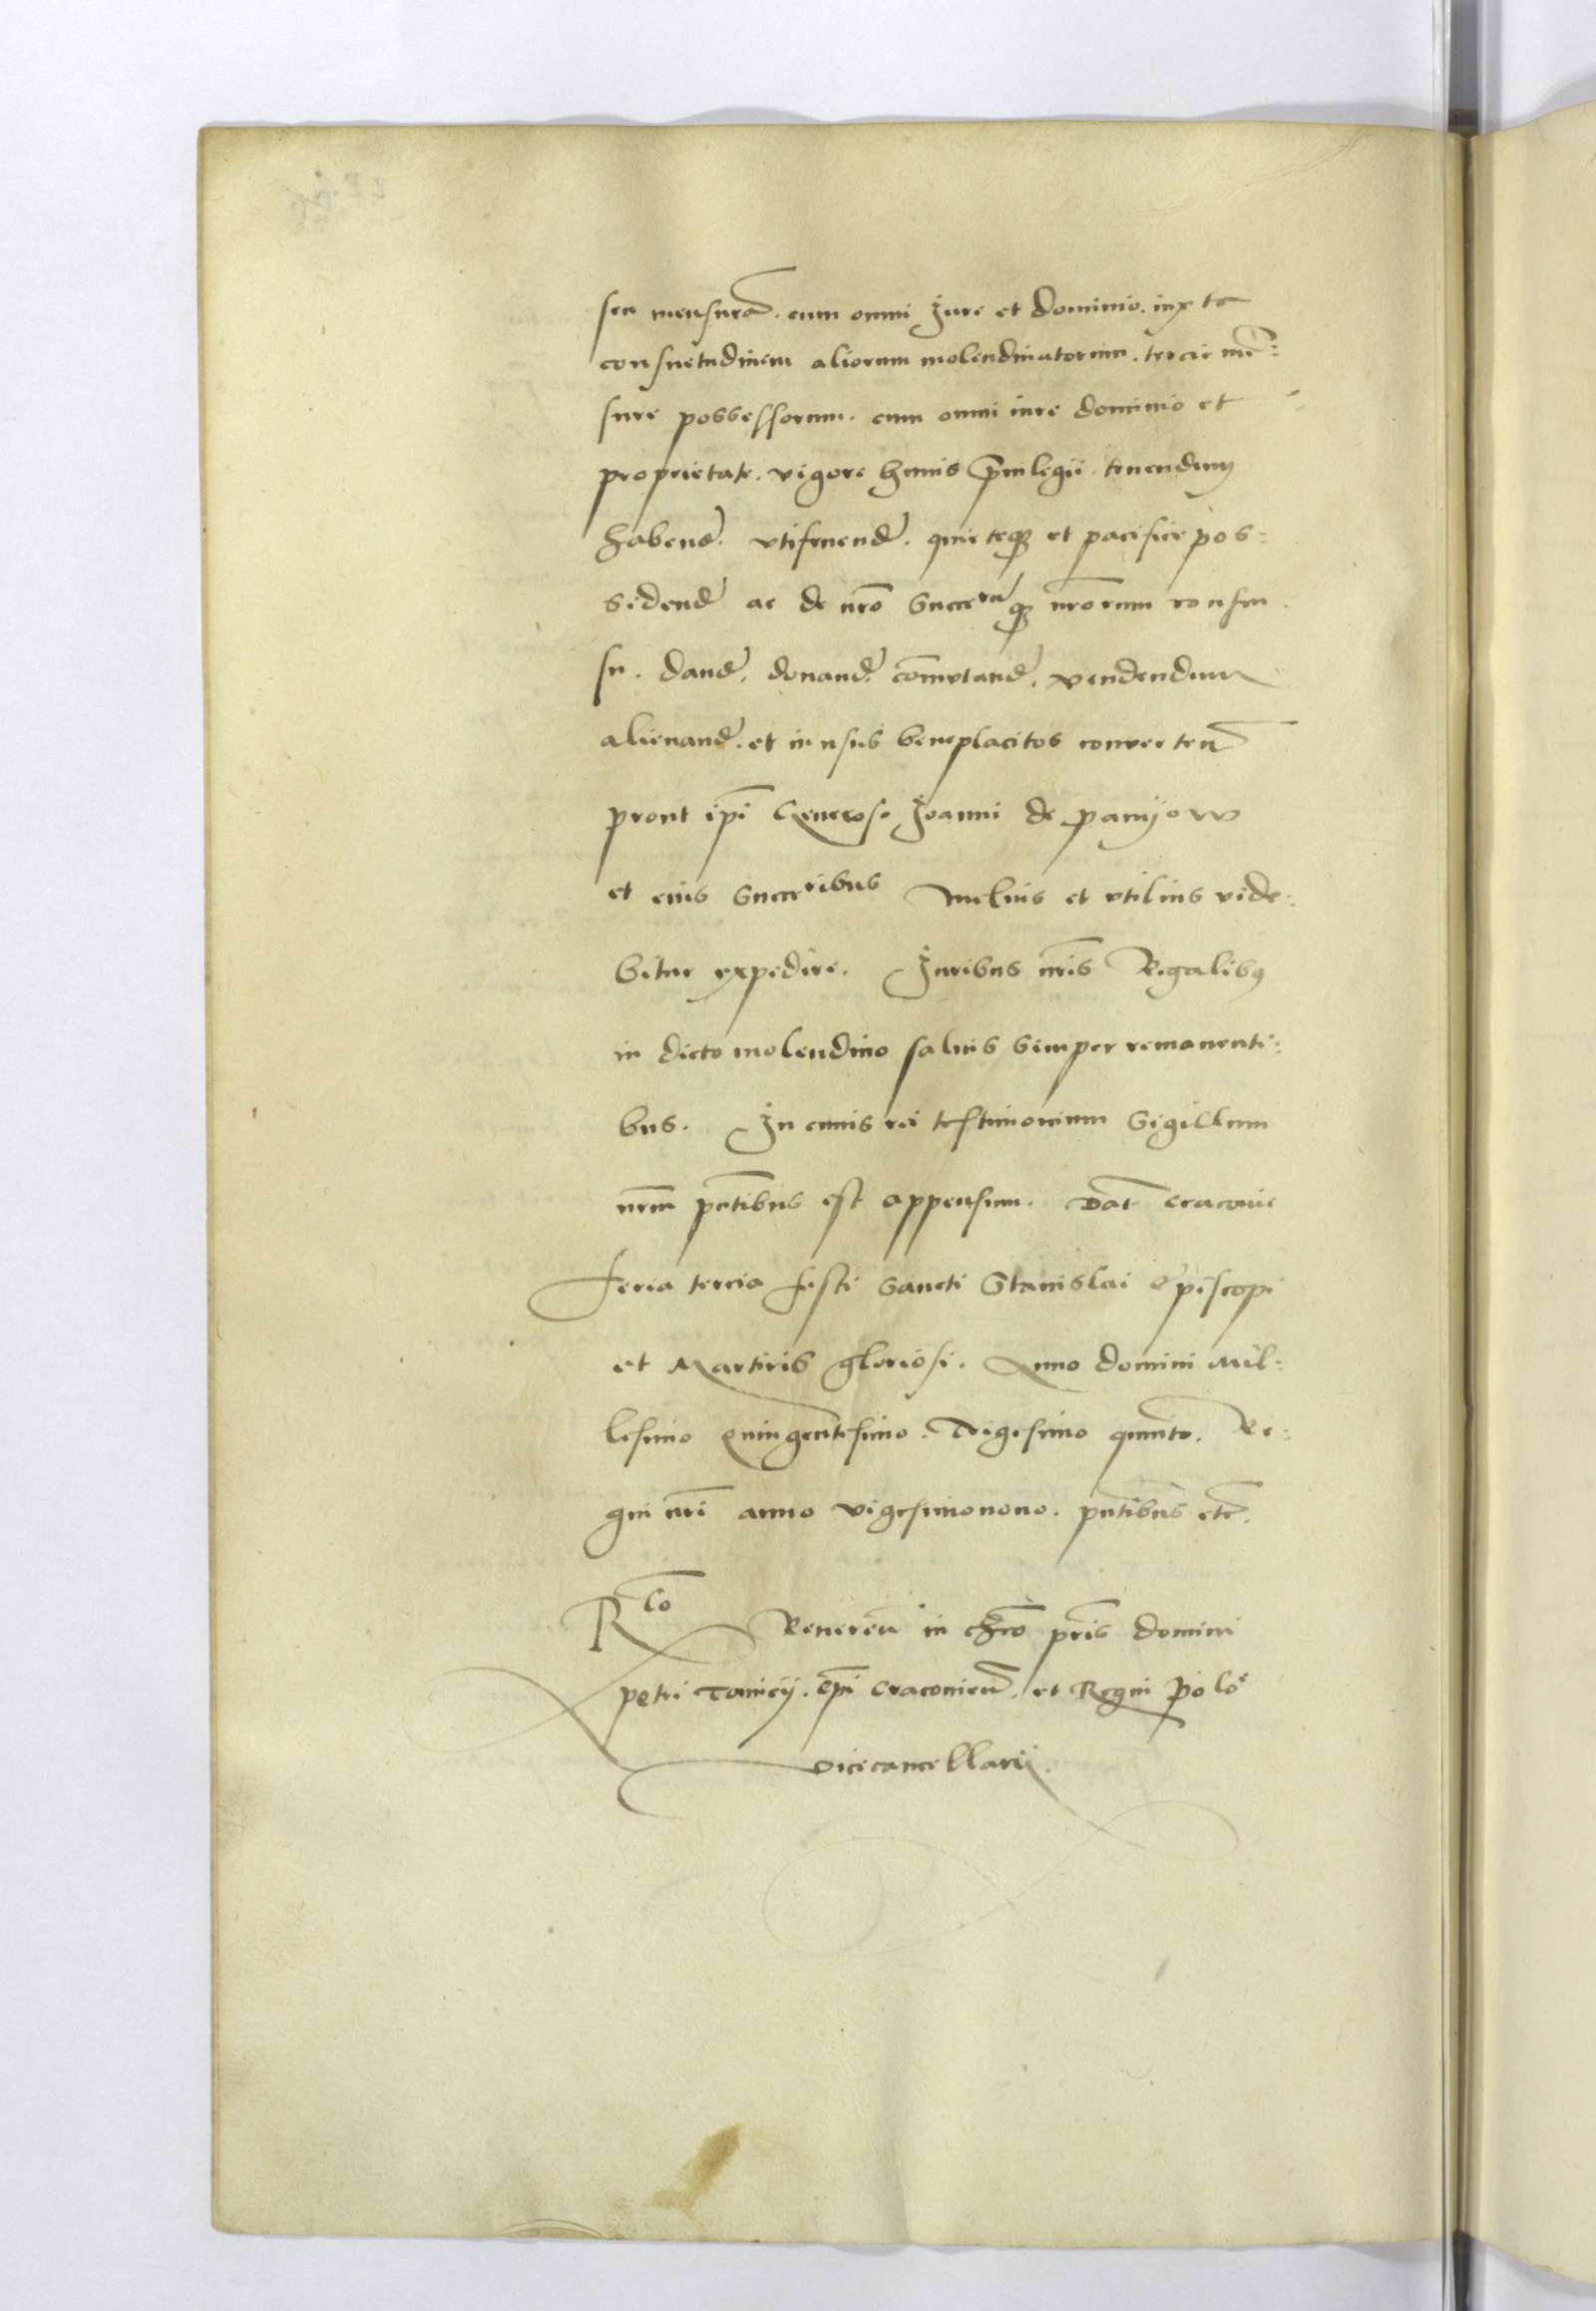 seu mensurã. cum omni Jure et dominio. iuxta
consuetudinem aliorum molendinatorum. tercie mẽ:
sure possessorum. cum omni iure dominio et
proprietate. vigore huius p̃uilegii tenendum
habend̃. vtifruend̃. quieteq̃ et pacifice pos:
sidend̃ ac de nr̃o Succeruq̃ nr̃orum consen
su. dand̃. donand̃. com̃utand̃. vendendum
alienand̃. et in usus beneplacitos converten̄
prout ip̃i Generoso Joanni de panyow
et eius Succeribus melius et vtilius vide:
bitur expedire. Juribus nr̃is Regalibꝯ
in dicto molendino saluis semper remanenti:
bus. In cuius rei testimonium Sigillum
nrm̃ pñtibus est appensum. Dat̃ Cracouie
feria tercia festi Sancti Stanislai Episcopi
et Martiris gloriosi. Anno domini Mil:
lesimo Quingentesimo. Trigesimo quinto. Re:
gni nr̃i anno vigesimonono. pñtibus etc̃.
Rlõ Reueren̄ in chr̃o pr̃is domini
petri Tomicij. ep̃i Cracouien̄. et Regni Polõe
vicecancellarij.